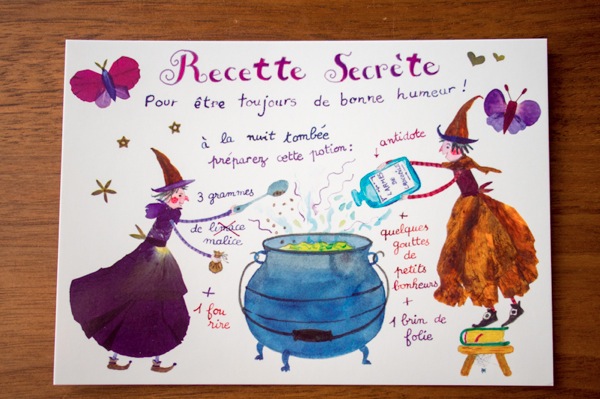 Recette Secrète
Pour être toujours de bonne humeur !
à la nuit tombée
préparez cette potion :
antidote
3 grammes
de limace
malice
+
1 fou
rire
+
quelques
gouttes
de
petits
bonheurs
+
1 brin de
folie